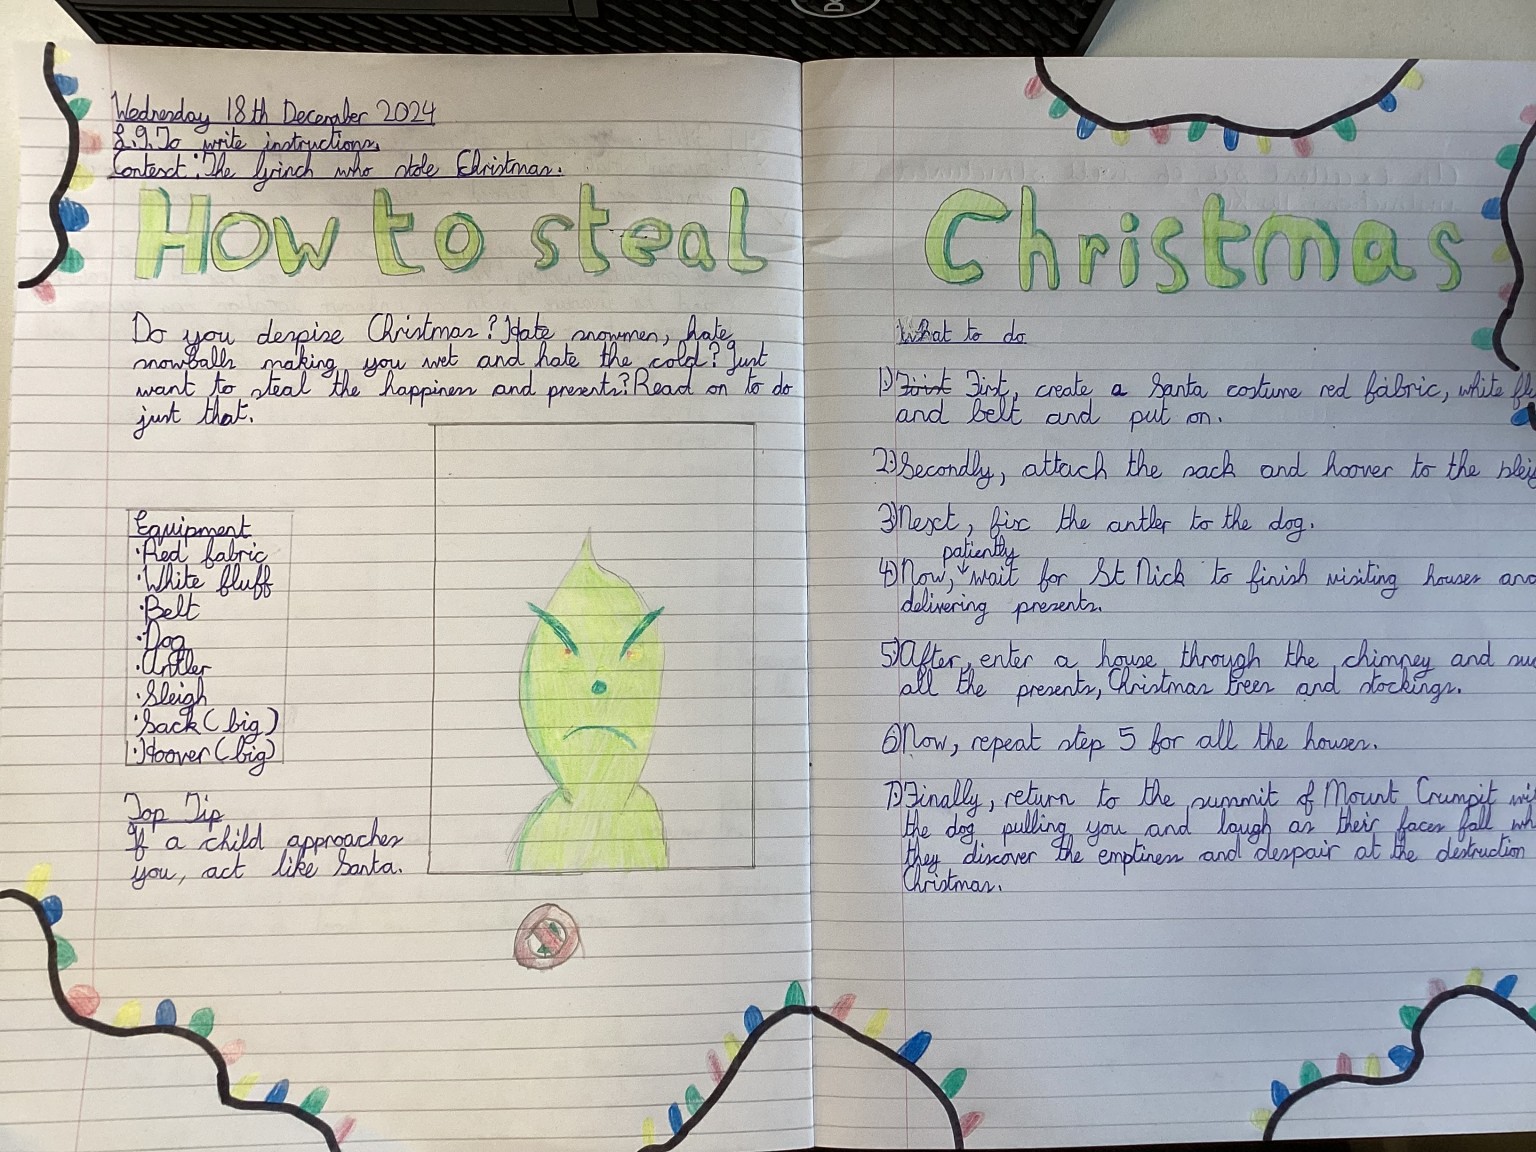 Wednesday 18th December 2024
L.I. To write instructions.
Context: The Grinch who stole Christmas.
How to steal Christmas
Do you despise Christmas? Hate snowmen, hate
snowballs making you wet and hate the cold? Just
want to steal the happiness and presents? Read on to do
just that.
Equipment
·Red fabric
·White fluff
·Belt
·Dog
·Antler
·Sleigh
·Sack (big)
·Hoover (big)
Top Tip
If a child approaches
you, act like Santa.
What to do
1) First, create a Santa costume red fabric, white
and belt and put on.
2) Secondly, attach the sack and hoover to the
3) Next, fix the antler to the dog.
patiently
4) Now, wait for St Nick to finish visiting houses and
delivering presents.
5) After, enter a house through the chimney and
all the presents, Christmas trees and stockings.
6) Now, repeat step 5 for all the houses.
7) Finally, return to the summit of Mount Crumpit
the dog pulling you and laugh as their faces fall
they discover the emptiness and despair at the destruction
Christmas.